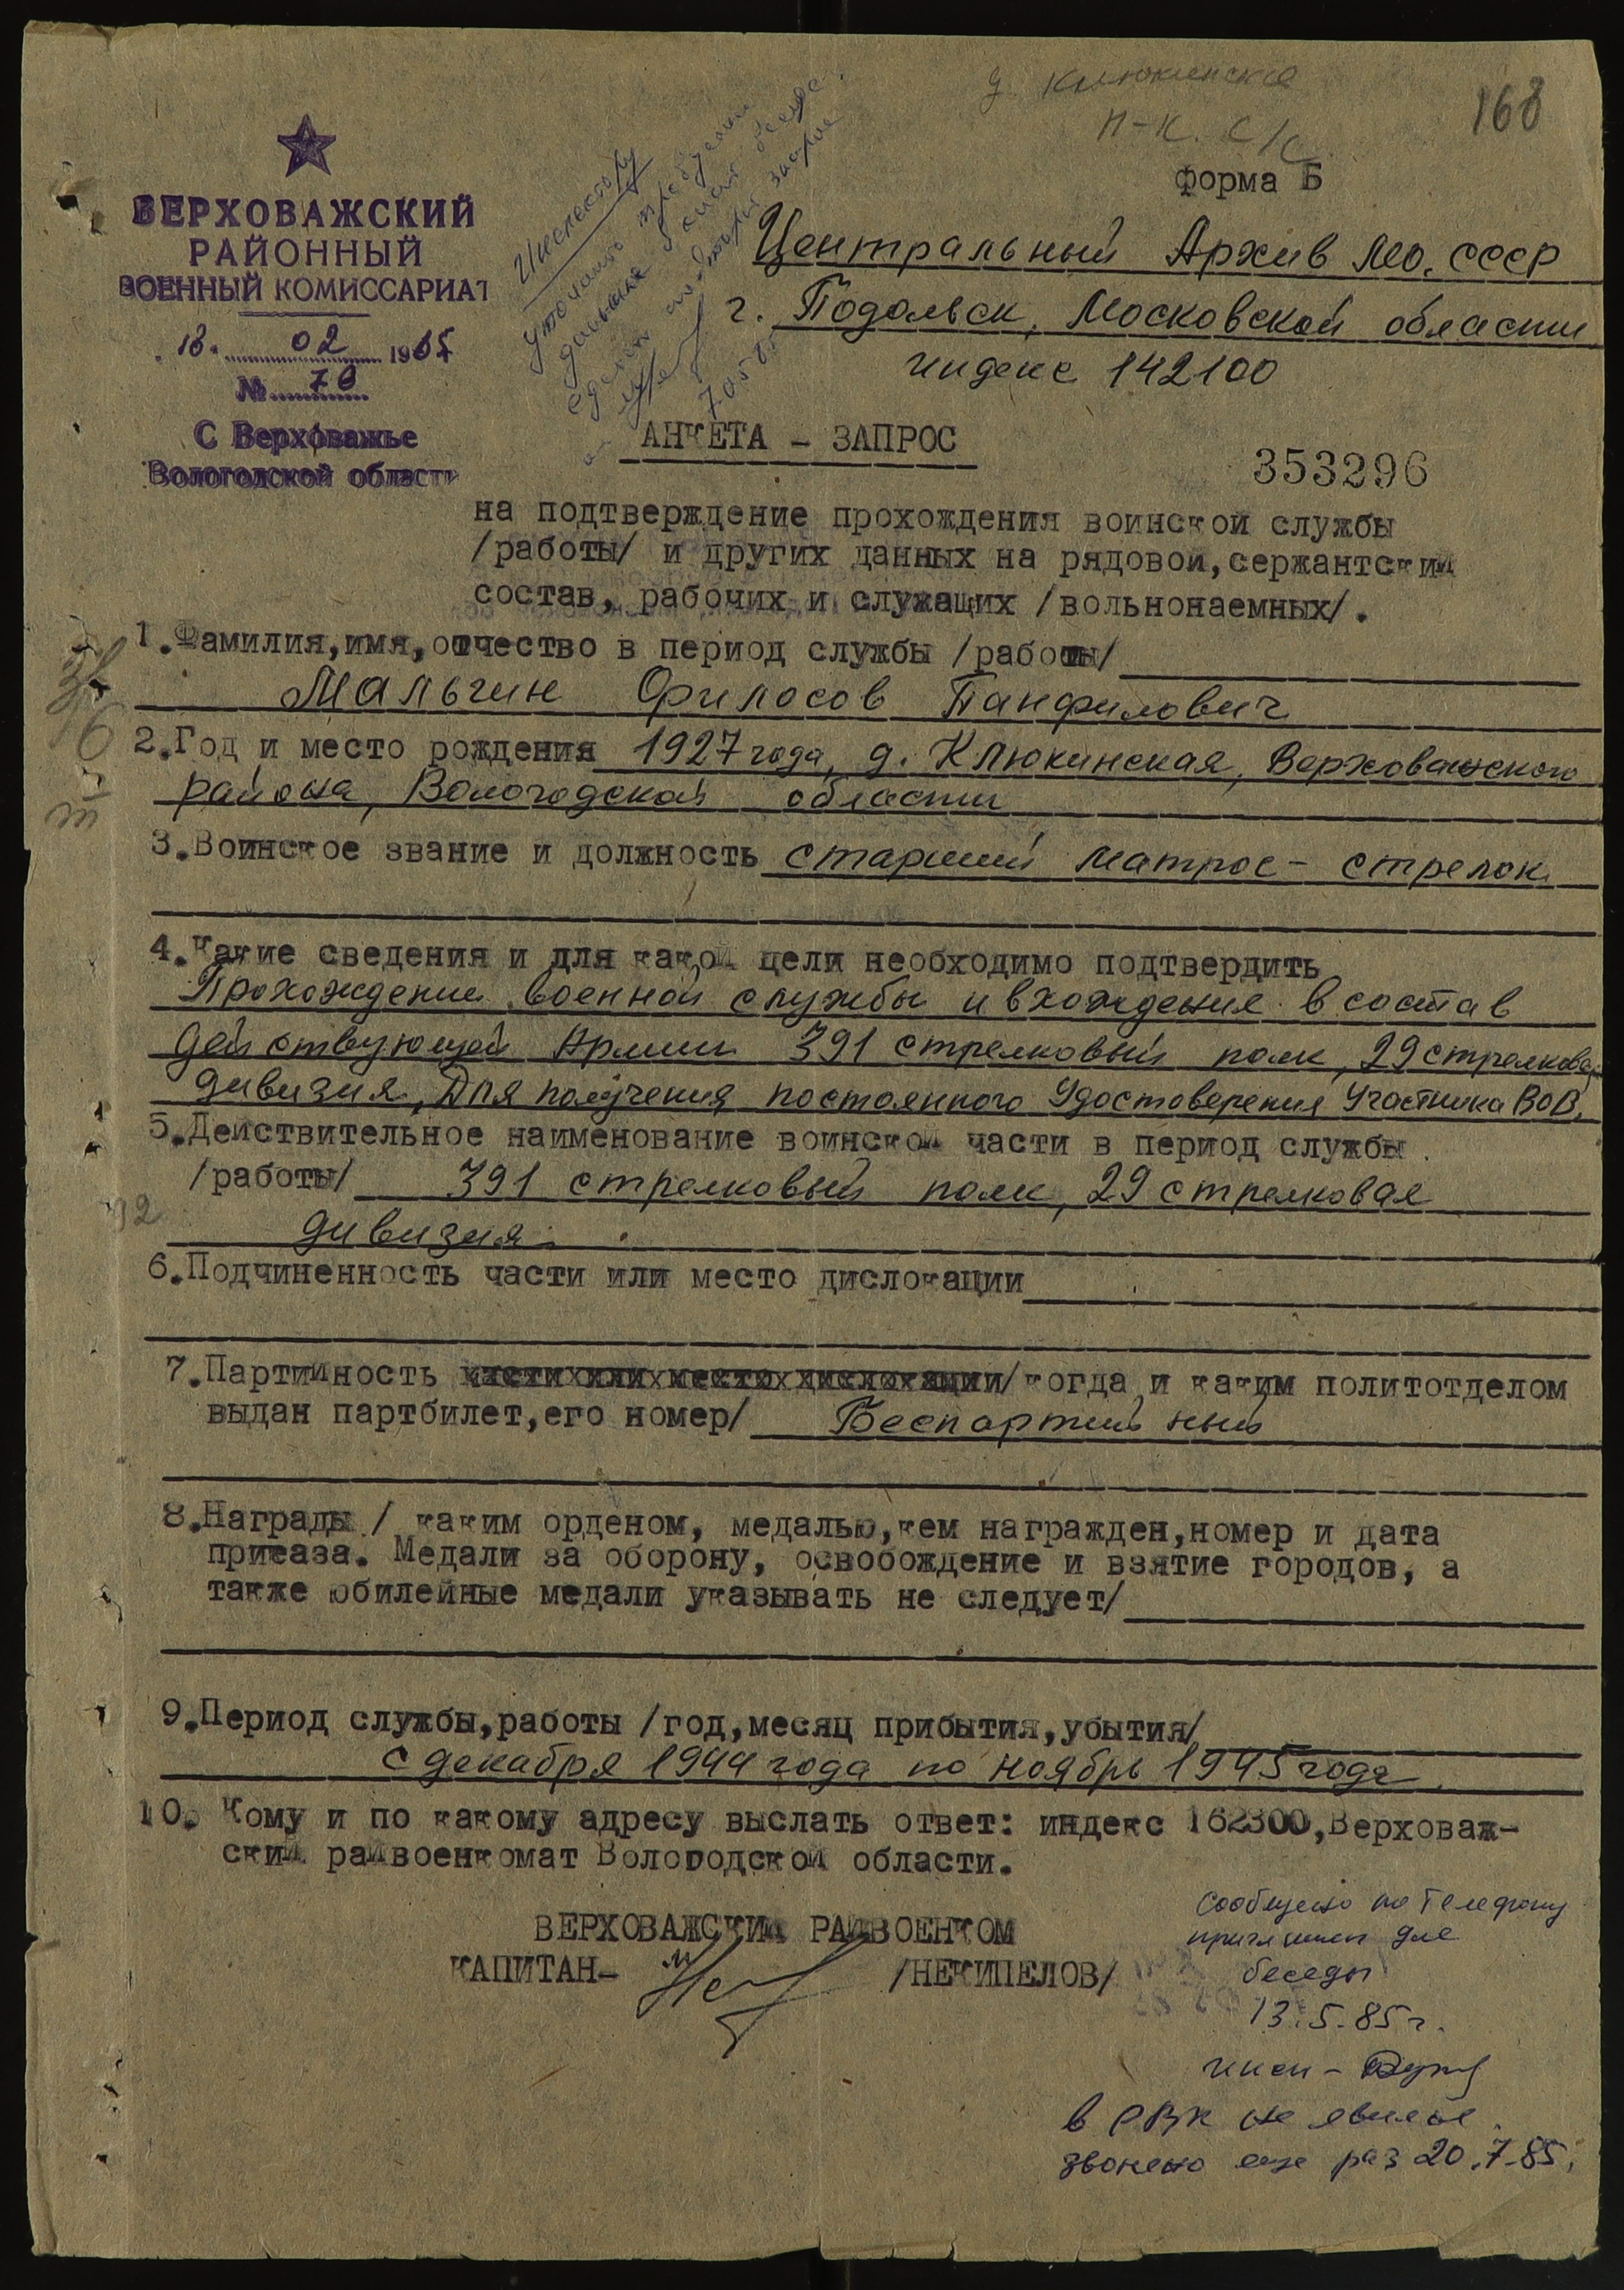 д. Клюкинская
168
п-к. с/с
форма Б
ВЕРХОВАЖСКИЙ
РАЙОННЫЙ
ВОЕННЫЙ КОМИССАРИАТ
18. 02 1985
№ 70
С Верховажье
Вологодской области
Инспектору
Центральный Архив МО. СССР
г. Подольск, Московской области
индекс 142100
АНКЕТА - ЗАПРОС
353296
на подтверждение прохождения воинской службы
/работы/ и других данных на рядовой,сержантский
состав, рабочих и служащих /вольнонаемных/.
1.Фамилия,имя,отчество в период службы /работы/
Мальгин Филосов Панфилович
2.Год и место рождения 1927 года, д. Клюкинская, Верховажского
района, Вологодской области
3.Воинское звание и должность старший матрос - стрелок
4.Какие сведения и для какой цели необходимо подтвердить
Прохождение военной службы и вхождения в состав
действующей Армии 391 стрелковый полк, 29 стрелковая
дивизия, Для получения постоянного Удостоверения Участника ВОВ.
5.Действительное наименование воинской части в период службы
/работы/ 391 стрелковый полк, 29 стрелковая
дивизия.
6.Подчиненность части или место дислокации
7.Партийность части или место дислокации/когда и каким политотделом
выдан партбилет,его номер/ Беспартийный
8.Награды / каким орденом, медалью,кем награжден,номер и дата
приказа. Медали за оборону, освобождение и взятие городов, а
также юбилейные медали указывать не следует/
9.Период службы,работы /год,месяц прибытия,убытия/
с декабря 1944 года по ноябрь 1945 года.
10. Кому и по какому адресу выслать ответ: индекс 162300,Верховаж-
ский райвоенкомат Вологодской области.
ВЕРХОВАЖСКИЙ РАЙВОЕНКОМ
КАПИТАН- /НЕКИПЕЛОВ/
Сообщено по телефону
приглашен для
беседы
13.5.85 г.
в РВК не явился.
звонено еще раз 20.7.85.